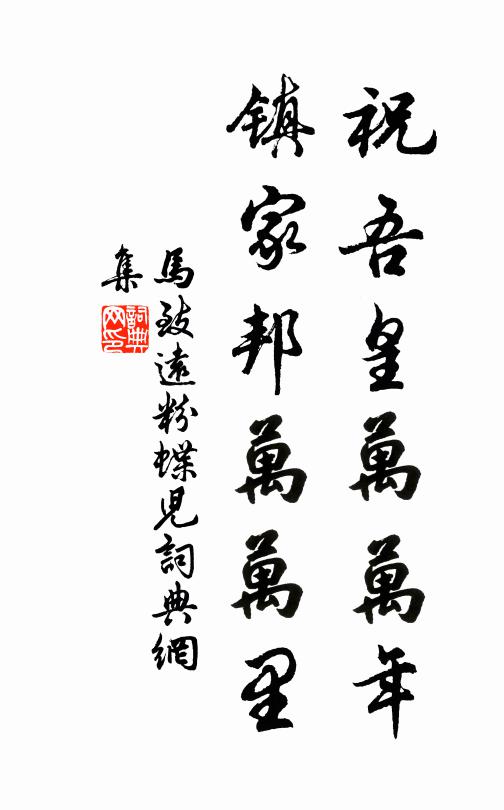 祝吾皇萬萬年
鎮家邦萬萬里
馬致遠粉蝶兒詞典網
集
詞典
网印